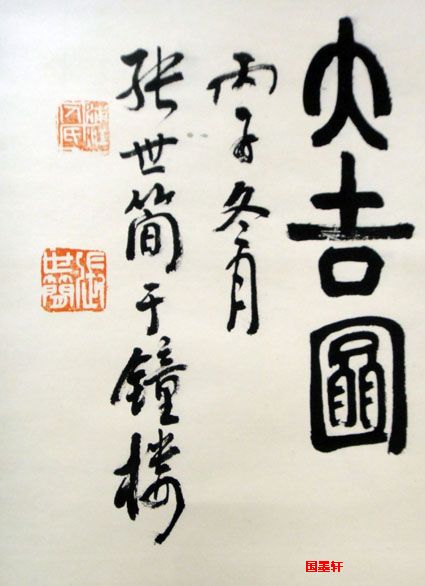 大吉圖
丙子冬月
張世簡于鐘楼
張世簡
国墨轩